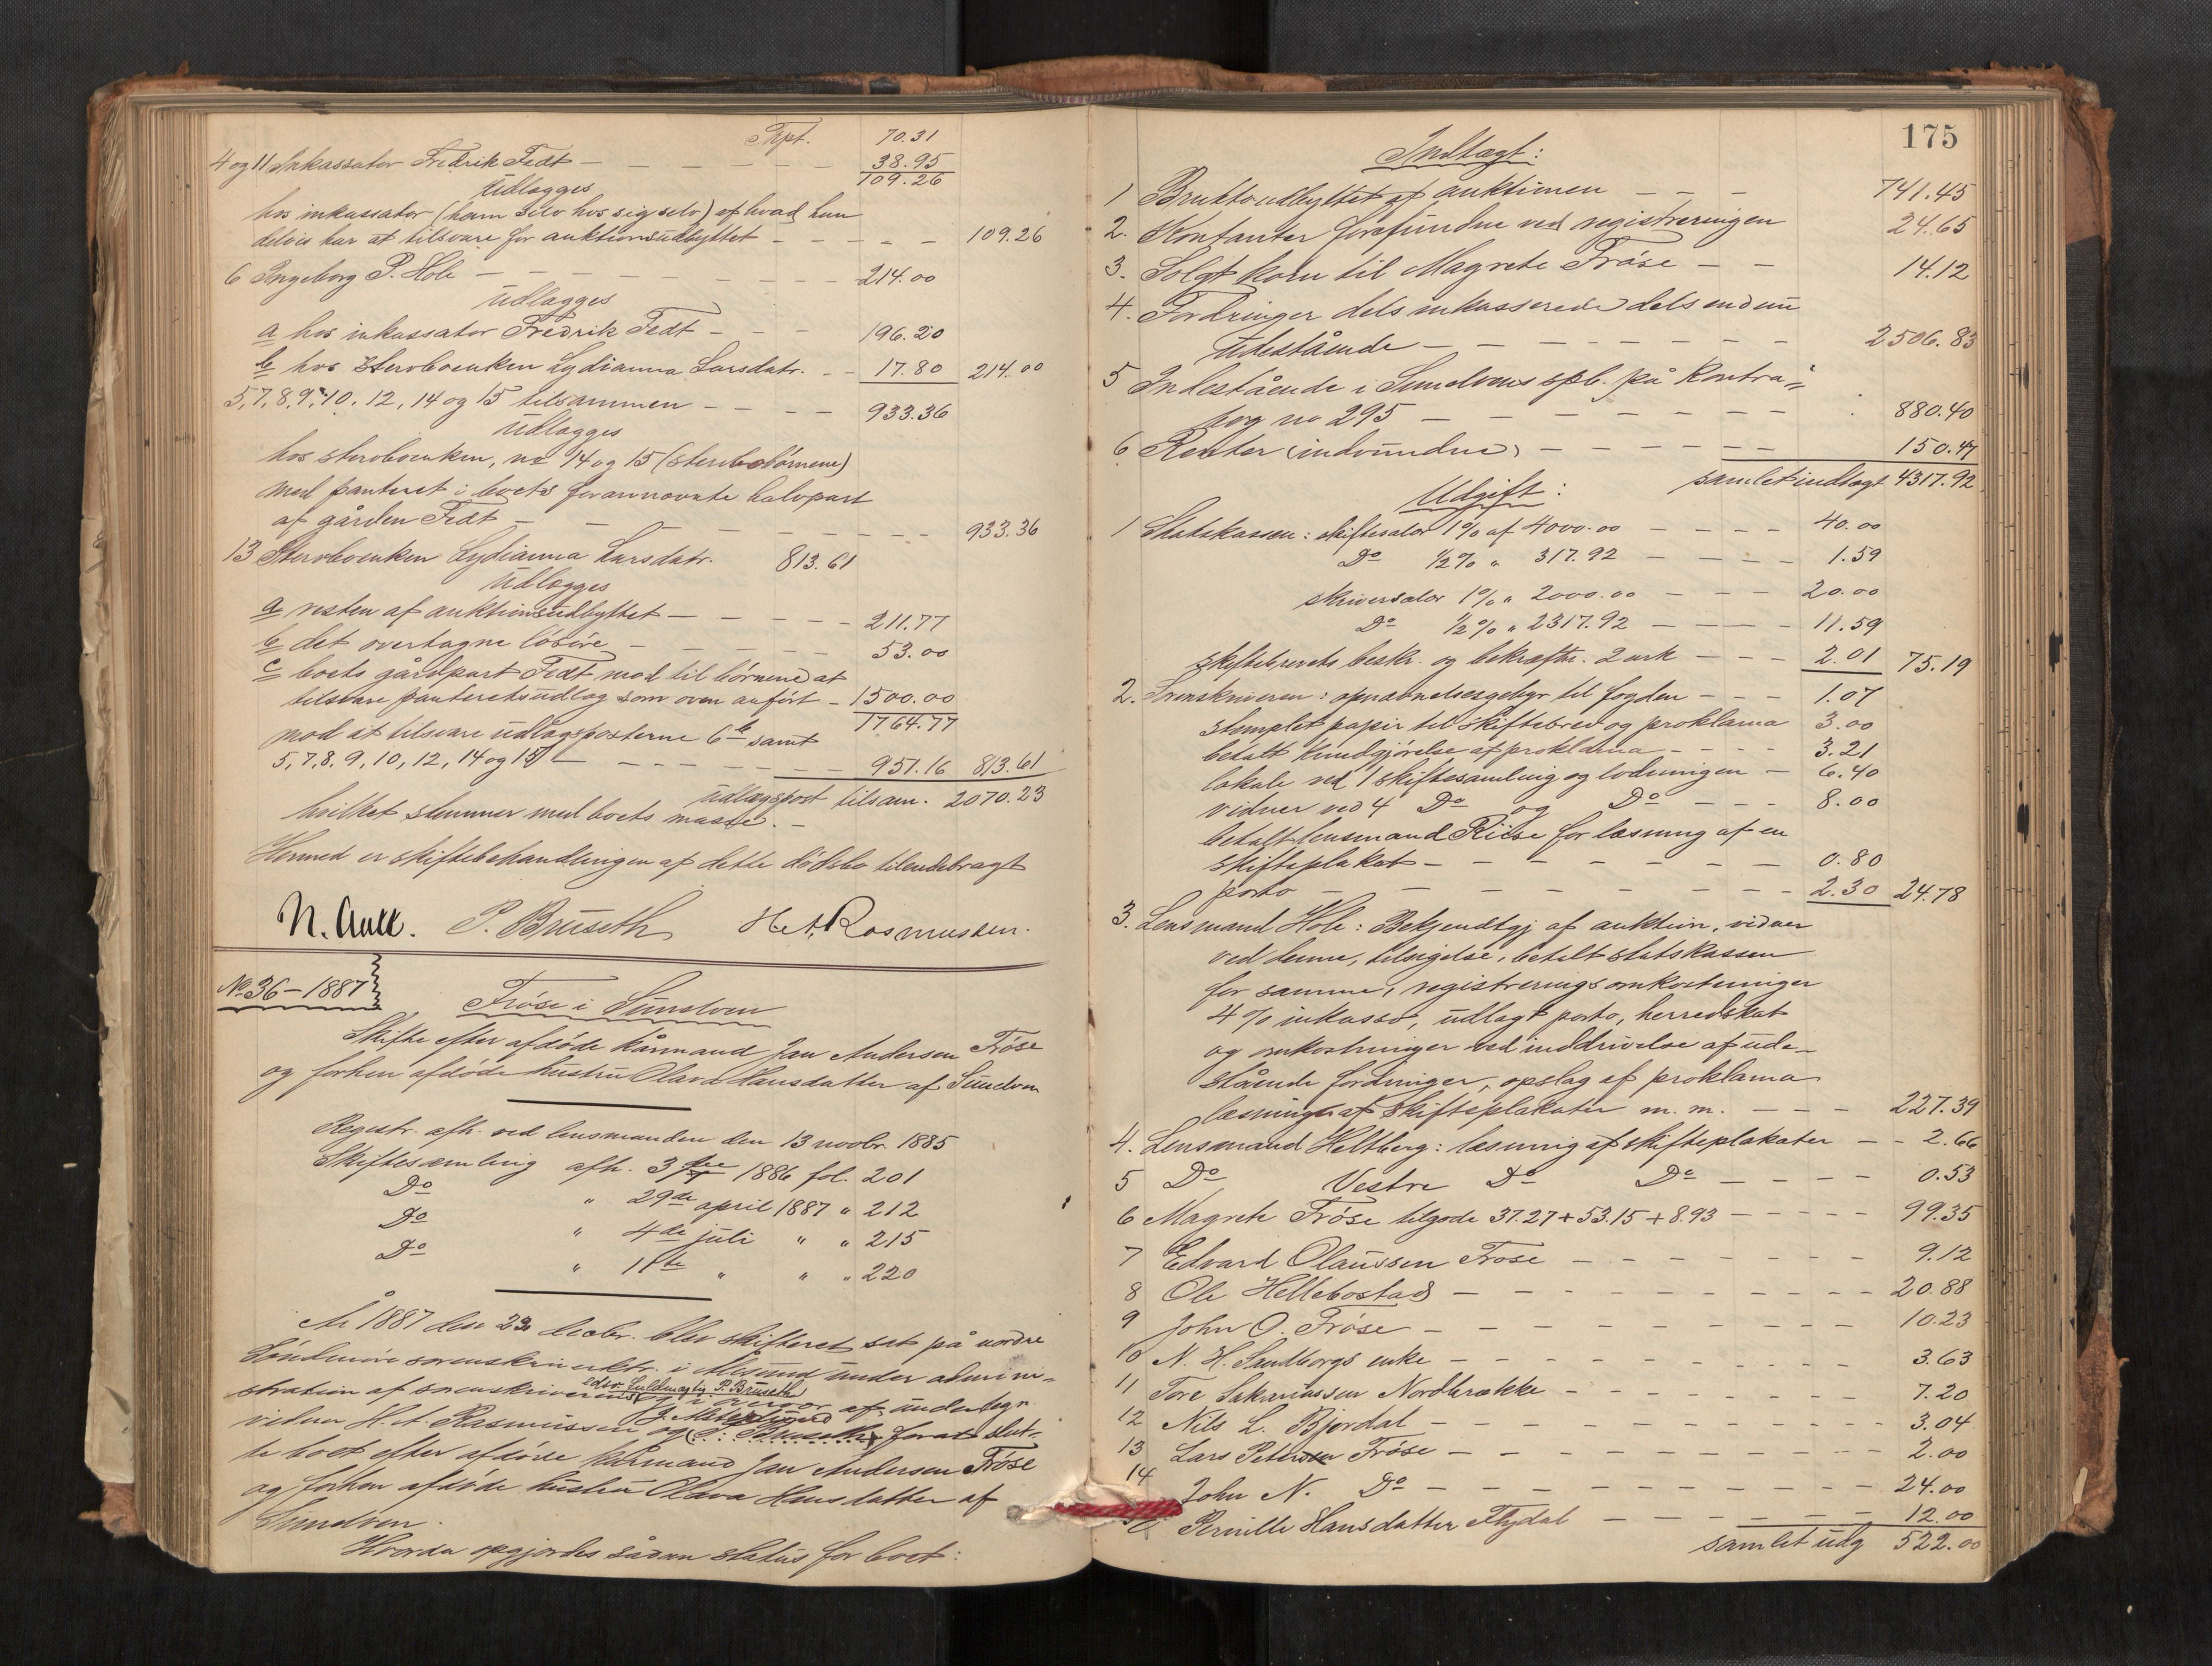 Trspt. 70.31
4 og 11 Inkassator Fredrik Fedt — — — — 38.95
109.26
Udlægges
hos inkassator (ham selv hos sig selv) af hvad han
delvis har at tilsvare for auktionsudbyttet — — — — 109.26
6 Ingeborg P. Hole — — — — 214.00
Udlægges
a hos inkassator Fredrik Fedt — — — 196.20
b hos sterboenken Lydianna Larsdatr. — — 17.80 214.00
5, 7, 8, 9, 10, 12, 14 og 15 tilsammen — — — — 933.36
Udlægges
hos sterboenken, no 14 og 15 (sterbobørnene)
med panteret i boets foranævnte halvpart
af gården Fedt — — — — — — 933.36
13 Sterboenken Lydianna Larsdatr. 813.61
Udlægges
a resten af auktionsudbyttet — — — — 211.77
b det overtagne løsøre — — — 53.00
c boets gårdpart Fedt mod til børnene at
tilsvare panteretsudlæg som oven anført — 1500.00
1764.77
mod at tilsvare udlægsposterne 6 b samt
5, 7, 8, 9, 10, 12, 14 og 15 — — — — 951.16 813.61
udlægspost tilsam. 2070.23
hvilket stemmer med boets masse. —
Hermed er skiftebehandlingen af dette dødsbo tilendebragt
N. Aall. P. Bruseth H. A. Rasmussen.
No 36 – 1887
Frøse i Sundven
Skifte efter afdøde kårmand Jan Andersen Frøse
og forhen afdøde hustru Olava Hansdatter af Sundven
Registr. afh. ved lensmanden den 13 novbr. 1885
Skiftesamling afh. 3 1886 fol. 201
Do " 29de april 1887 " 212
Do " 4de juli " " 215
Do " 11te " " " 220
År 1887 den 23 decbr. blev skifteret sat på nordre
Søndmøre sorenskriverktr. i Ålesund under admini-
stration af sorenskriverens edsv. fuldmægtig P. Bruseth i nærvær af undertegn.
vidner H. A. Rasmussen og P. Bruseth forat slut-
te boet efter afdøde kårmand Jan Andersen Frøse
og forhen afdøde hustru Olava Hansdatter af
Sundven.
Hvorda opgjordes sådan status for boet:
175
Indtægt:
1 Bruttoudbyttet af auktionen — — — 741.45
2. Kontanter forefundne ved registreringen 24.65
3. Solgt korn til Magrete Frøse — — 14.12
4. Fordringer dels inkasserede dels endnu
udestående — — — — — — 2506.83
5 Indestående i Sundvens spb. på kontra-
bog no 295 — — — — — — 880.40
6 Renter (indvundne) — — — — 150.47
samlet indtægt 4317.92
Udgift:
1 Statskassen: skiftesalær 1% af 4000.00 — — — — 40.00
Do ½% " 317.92 — — — — 1.59
skriversalær 1% " 2000.00 — — — 20.00
Do ½% " 2317.92 — — — — 11.59
skiftebrevets beskr. og bekræftn. 2 ark — — — 2.01 75.19
2. Sorenskriveren: opnævnelsesgebyr til fogden — — — 1.07
stemplet papir til skiftebrev og proklama 3.00
betalt kundgjørelse af proklama — — — — 3.21
lokale ved 1 skiftesamling og lodningen — 6.40
vidner ved 4 Do og Do — — — 8.00
betalt lensmand Riise for læsning af en
skifteplakat — — — — — — 0.80
porto — — — — — — — 2.30 24.78
3. Lensmand Hole: Bekjendtgj af auktion, vidner
ved denne, tilsigelse, betalt statskassen
for samme, registreringsomkostninger
4% inkasso, udlagt porto, herredskat
og omkostninger ved inddrivelse af ude-
stående fordringer, opslag af proklama
læsninger af skifteplakater m. m. — — — 227.39
4. Lensmand Heltberg: læsning af skifteplakater — — 2.66
5 Do Vestre Do Do — — — — 0.53
6 Magrete Frøse tilgode 37.27 + 53.15 + 8.93 — — — — 99.35
7 Edvard Olaussen Frøse — — — — — — 9.12
8 Ole Hellebostad — — — — — — — — 20.88
9 John O. Frøse — — — — — — — — 10.23
10 N. H. Sandborgs enke — — — — — — — 3.63
11 Tore Sakariassen Nordbrække — — — — — — 7.20
12 Nils L. Bjørdal — — — — — — — — 3.04
13 Lars Petersen Frøse — — — — — — — — 2.00
14 John N. Do — — — — — — — — 24.00
Pernille Hansdatter Flydal — — — — — — 12.00
samlet udg 522.00